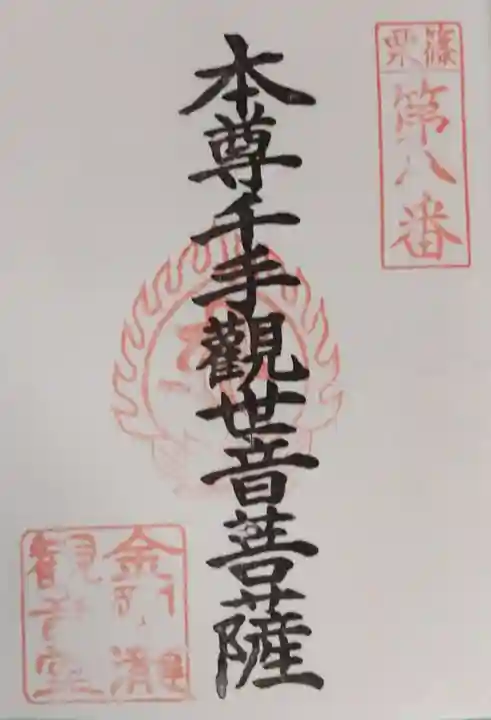 篠栗
第八番
本尊千手觀世音菩薩
金剛 瀧
觀音堂